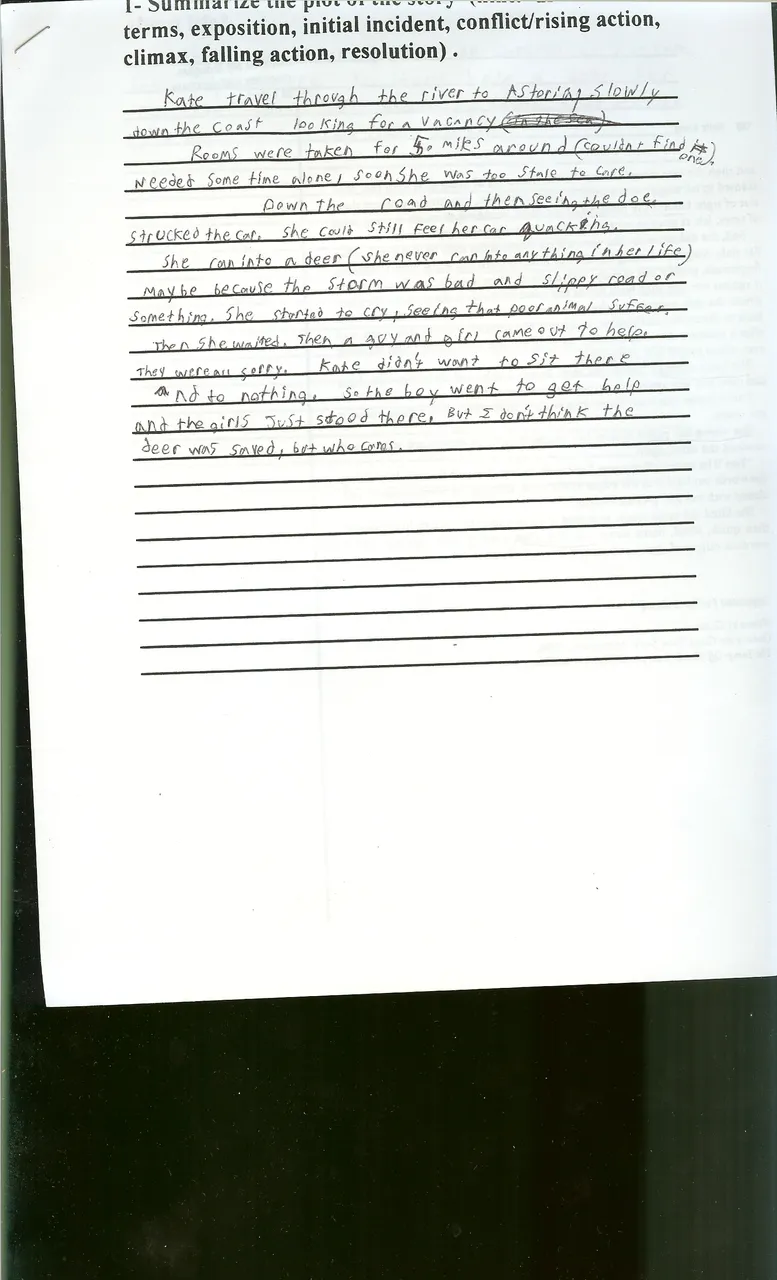 1- Summarize the plot of the story
terms, exposition, initial incident, conflict/rising action,
climax, falling action, resolution) .
Kate travel through the river to Astoria, slowly
down the coast looking for a vacancy
Rooms were taken for 50 miles around (couldnt find
one).
Needed some time alone, soon she was too stale to care.
Down the road and then seeing the doe.
Strucked the car. She could still feel her car quacking.
She ran into a deer (she never ran into anything in her life)
Maybe because the storm was bad and slippy road or
something. She started to cry, seeing that poor animal suffer.
Then she waited. Then a guy and girl came out to help.
They were all sorry. Kate didn't want to sit there
And to nothing. So the boy went to get help
and the girls just stood there. But I don't think the
deer was saved, but who cares.